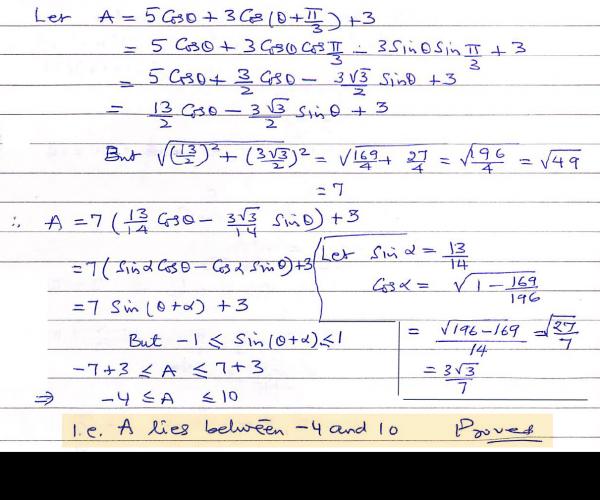 Let A = 5 Cosθ + 3 Cos(θ + π/3) + 3
= 5 Cosθ + 3 Cosθ Cos π/3 - 3 Sinθ Sin π/3 + 3
= 5 Cosθ + 3/2 Cosθ - 3√3/2 Sinθ + 3
= 13/2 Cosθ - 3√3/2 Sinθ + 3
But √((13/2)² + (3√3/2)²) = √(169/4 + 27/4) = √(196/4) = √49
= 7
∴ A = 7 (13/14 Cosθ - 3√3/14 Sinθ) + 3
= 7 (Sinα Cosθ - Cosα Sinθ) + 3
= 7 Sin (θ+α) + 3
But -1 ≤ Sin(θ+α) ≤ 1
-7+3 ≤ A ≤ 7+3
⇒ -4 ≤ A ≤ 10
Let Sin α = 13/14
Cosα = √(1 - 169/196)
= √(196-169)/14 = √27/7
= 3√3/7
I.e. A lies between -4 and 10 Proved